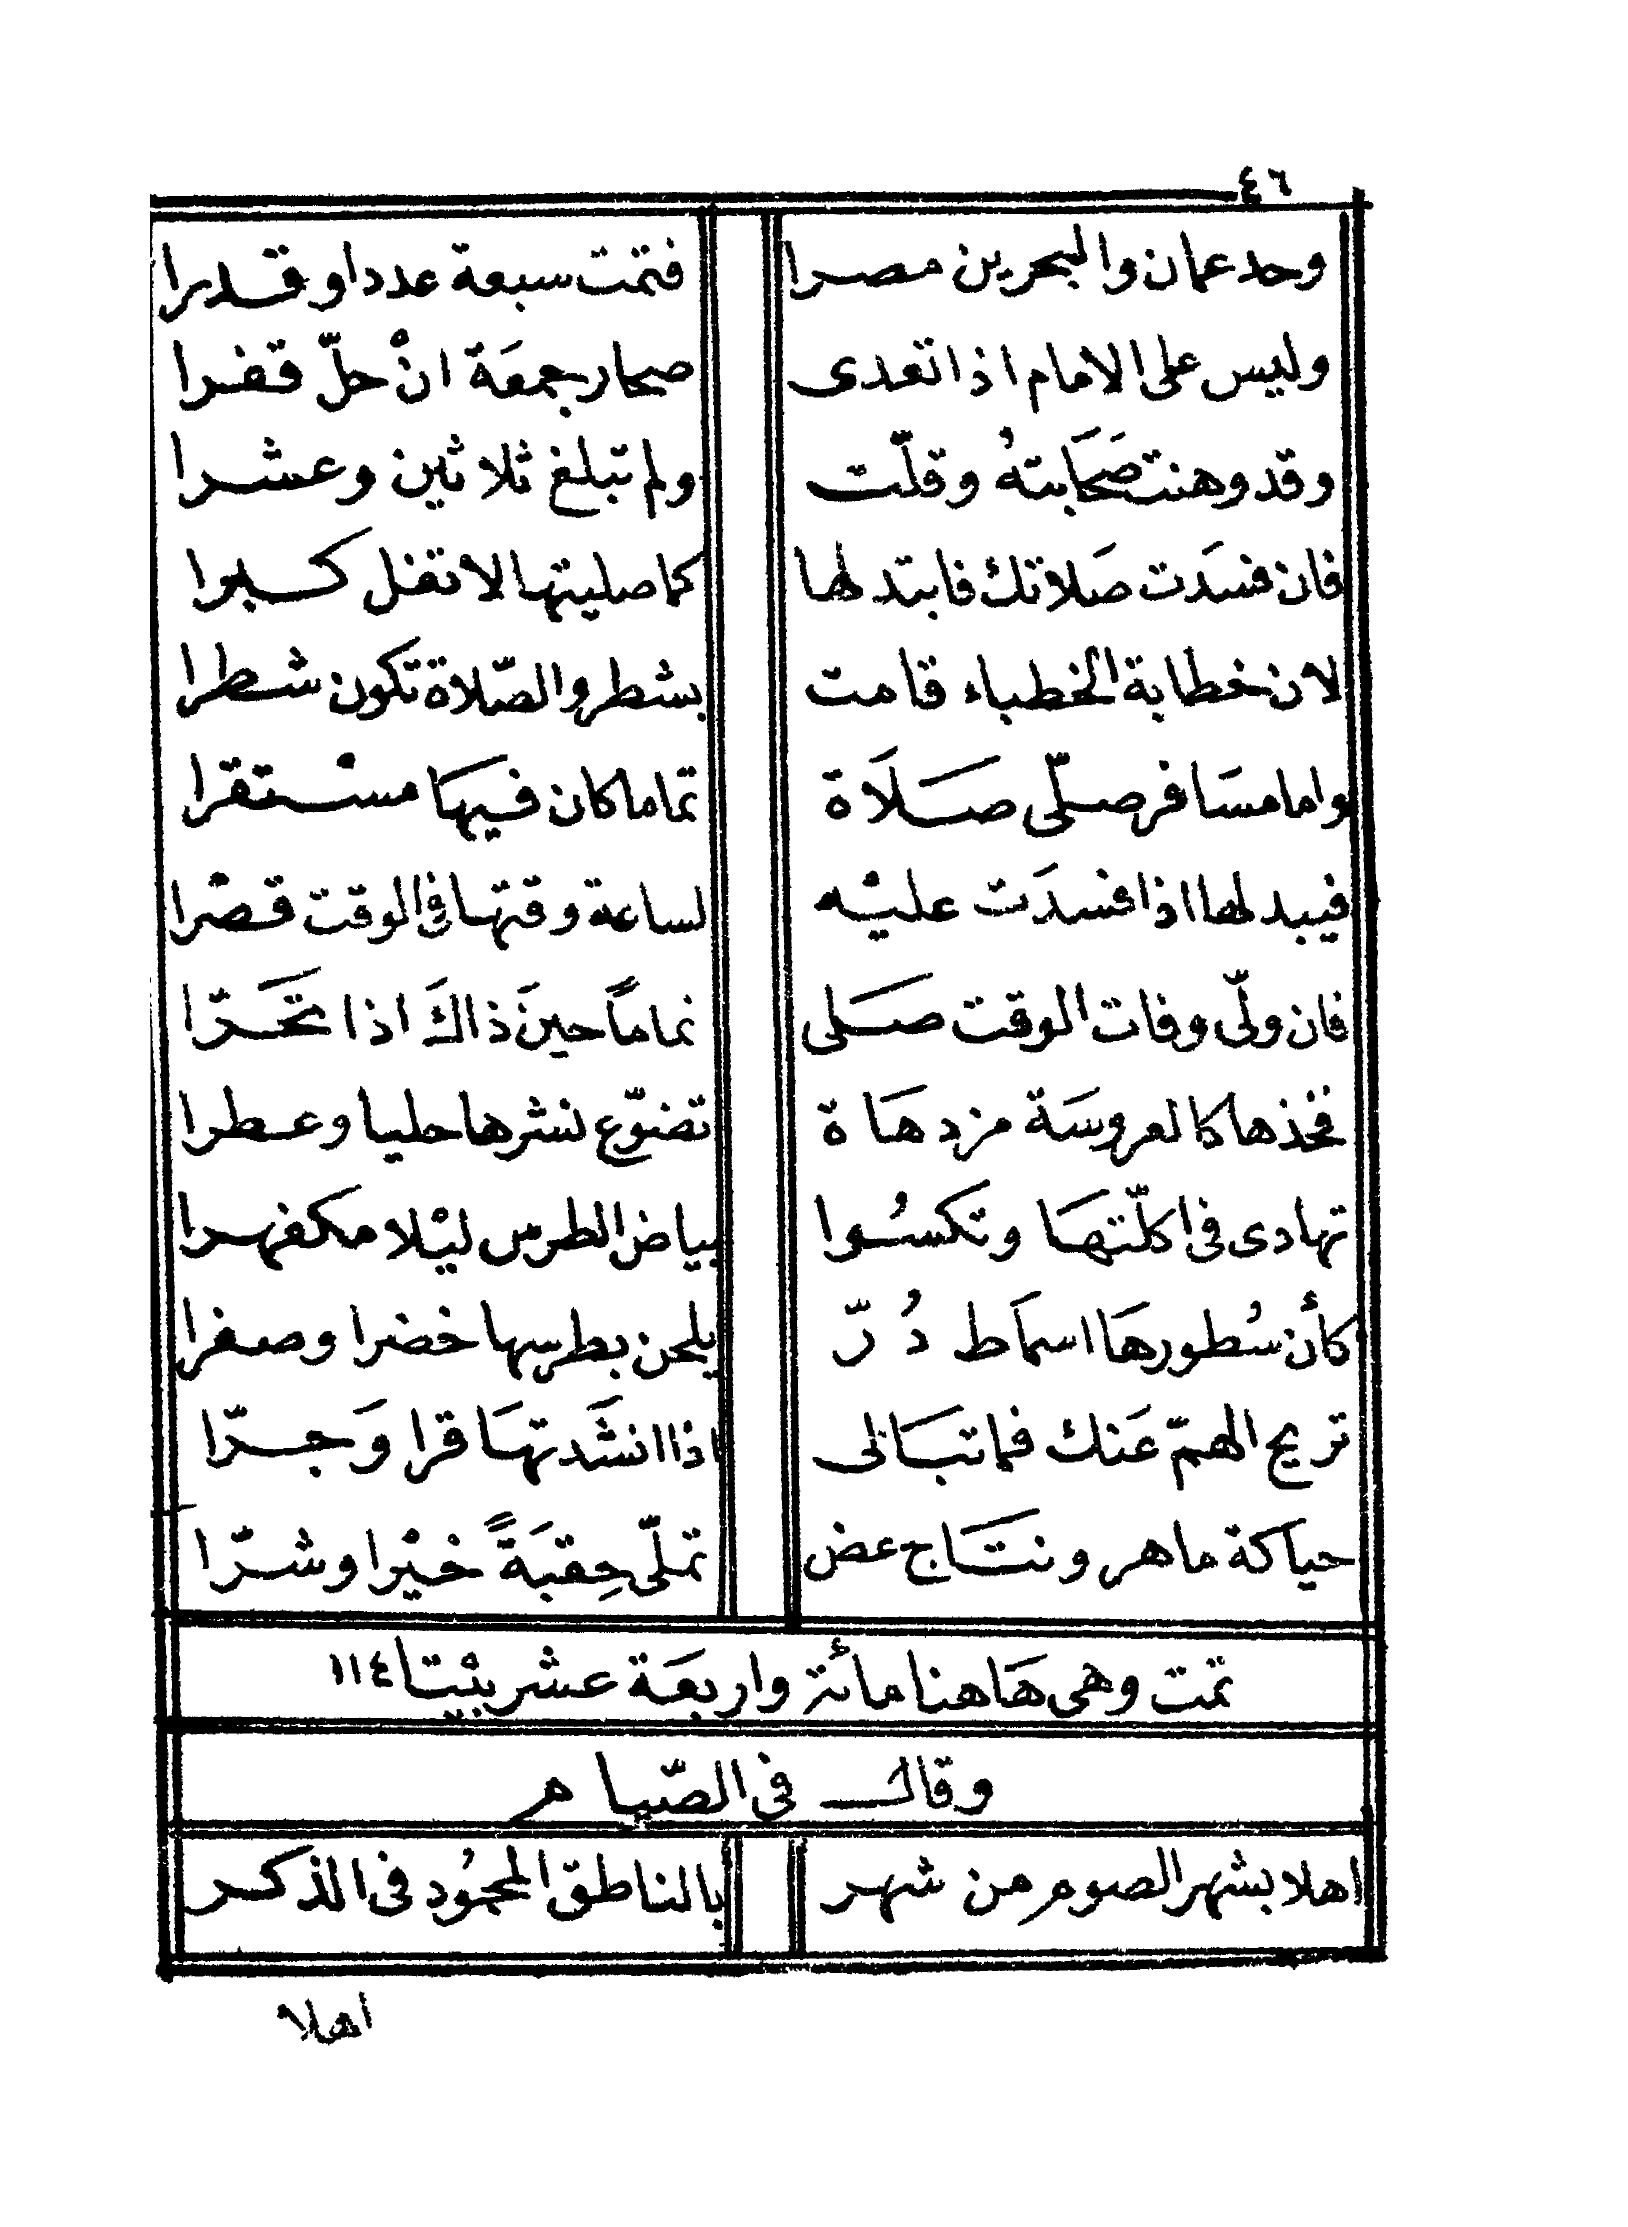 ٤٦
وحد عمان والبحرين مصرا فتمت سبعة عددا وقدرا
وليس على الامام اذا تعدى صحار جمعَة انْ حلّ قفرا
وقد وهنت صَحَابتهُ وقلّت ولم تبلغ ثلاثين وعشرا
فان فسَدت صَلاتك فابتد لها كما صليتها لا تغفل كبرا
لان خطابة الخطباء قامت بشطر والصّلاة تكون شطرا
وامامسَافر صلّى صَلَاة تماما كان فيهَا مسْتقرا
فيبد لها اذا فسدَت عليْه لساعة وقتها فى الوقت قصْرا
فان ولّى وفات الوقت صَلى تماماً حينَ ذاكَ اذا تحَرّا
فخذها كالعروسَة مزدهَاة تضوّع نشرها حليا وعطرا
تهادى فى اكلّتهَا وتكسُوا بياض الطرس ليْلا مكفهرا
كأن سُطورهَا اسمَاط دُرّ يلحن بطرسها خضرا وصفرا
تريح الهمّ عَنك فما تبَالى اذا انشَدتهَا قرا وَجرّا
حياكة ماهر ونتَاج عض تملّى حِقبَةً خيْرا وشرّا
تمت وهى هَاهنا مائة واربعَة عشر بيْتا ١١٤
وقال فى الصّيام
اهلا بشهر الصوم من شهر بالناطق المحمُود فى الذكر
اهلا